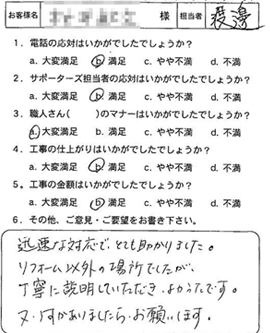 お客様名 様 担当者 渡邊
1．電話の応対はいかがでしたでしょうか？
a. 大変満足 b. 満足 c. やや不満 d. 不満
2．サポーターズ担当者の応対はいかがでしたでしょうか？
a. 大変満足 b. 満足 c. やや不満 d. 不満
3．職人さん（ ）のマナーはいかがでしたでしょうか？
a. 大変満足 b. 満足 c. やや不満 d. 不満
4．工事の仕上がりはいかがでしたでしょうか？
a. 大変満足 b. 満足 c. やや不満 d. 不満
5．工事の金額はいかがでしたでしょうか？
a. 大変満足 b. 満足 c. やや不満 d. 不満
6．その他、ご意見・ご要望をお書き下さい。
迅速な対応でとても助かりました。
リフォーム以外の場所でしたが、
丁寧に説明していただき、よかったです。
又、何かありましたら、お願いします。